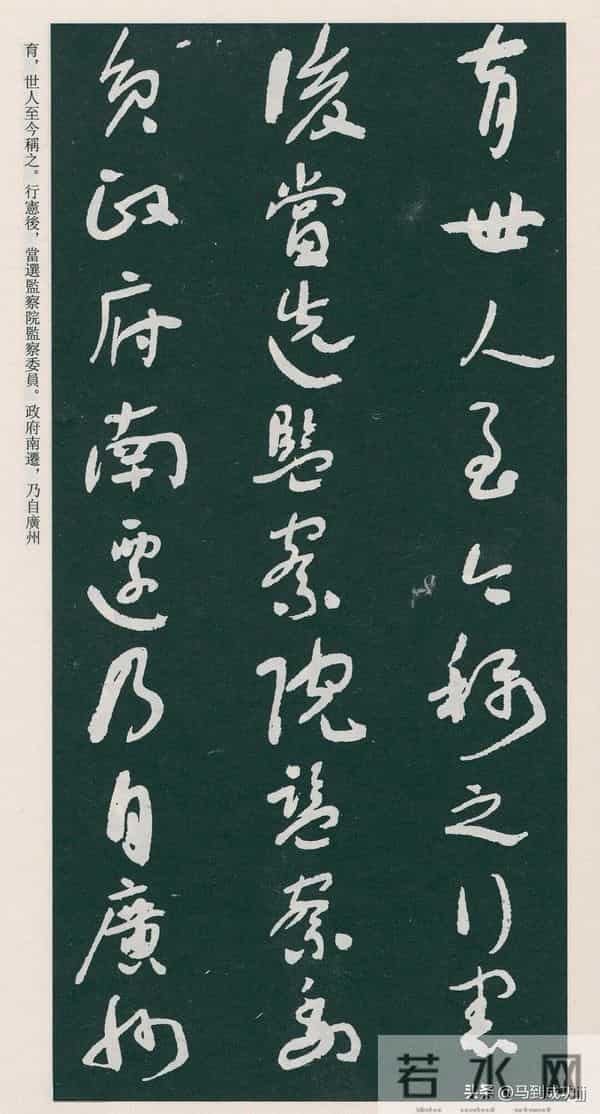 育世人至今稱之行憲
後當選監察院監察委
員政府南遷乃自廣州
育，世人至今稱之。行憲後，當選監察院監察委員。政府南遷，乃自廣州
若水网
头条 @马到成功jj